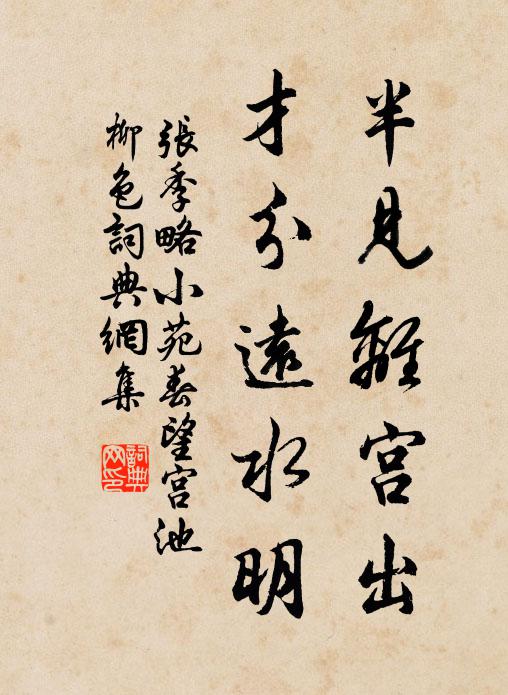 半見離宮出
才分遠水明
張季略小苑春望宮池
柳色詞典網集
詞典
网印